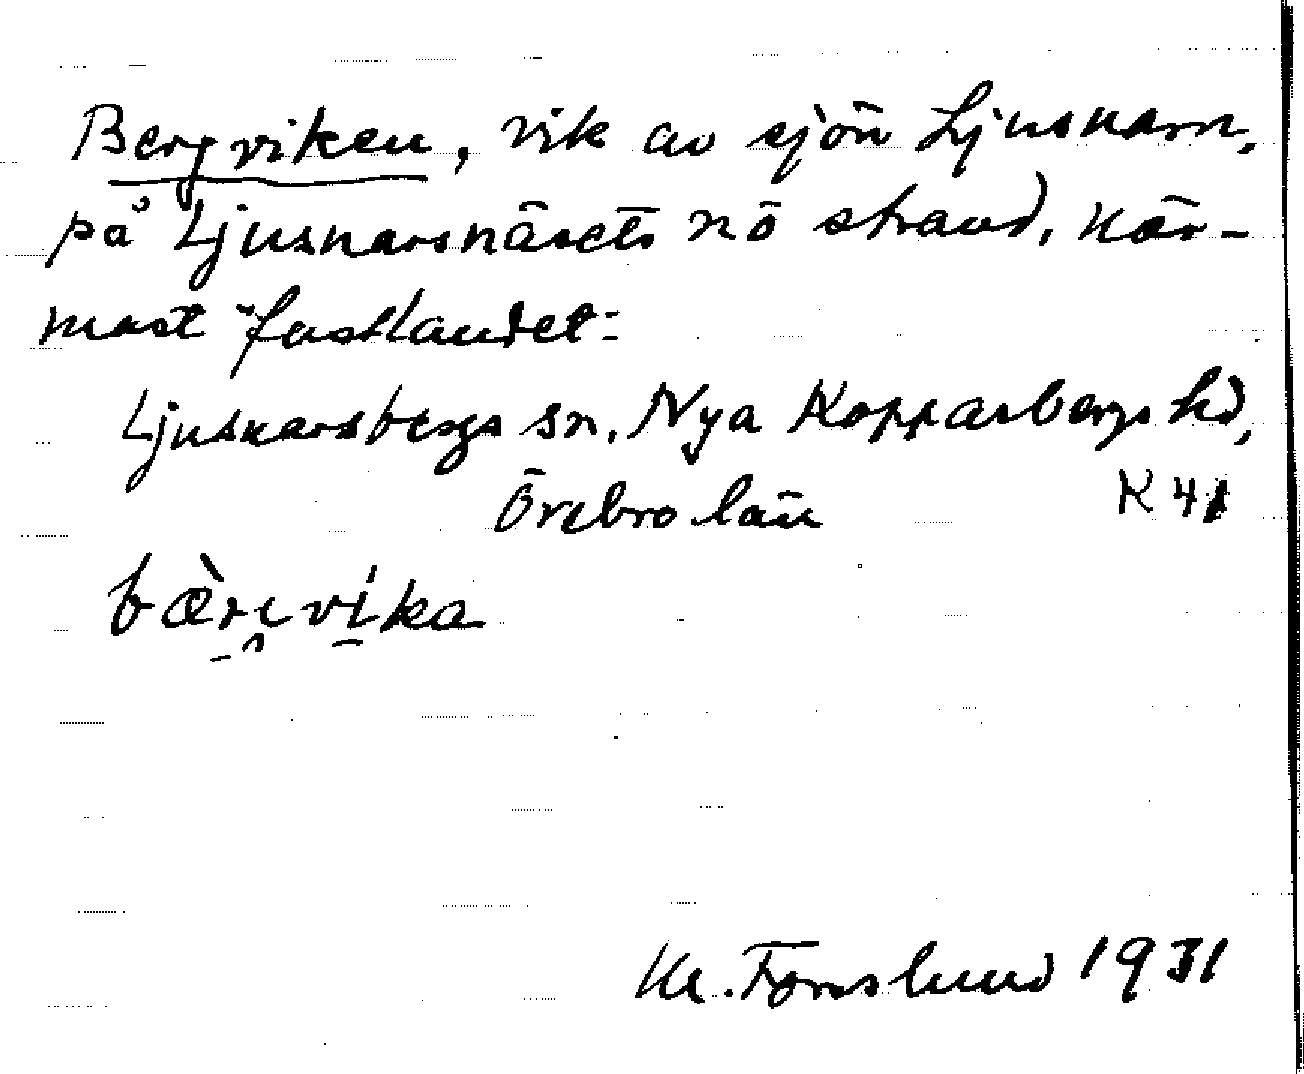 Bergviken, vik av sjön Ljusnarn,
på Ljusnarsnäsets nö strand, när-
mast "fastlandet":
Ljusnarsbergs sn, Nya Kopparbergs hd,
Örebro län K 41
bæ̀rivíka
Kl. Fornslund 1931